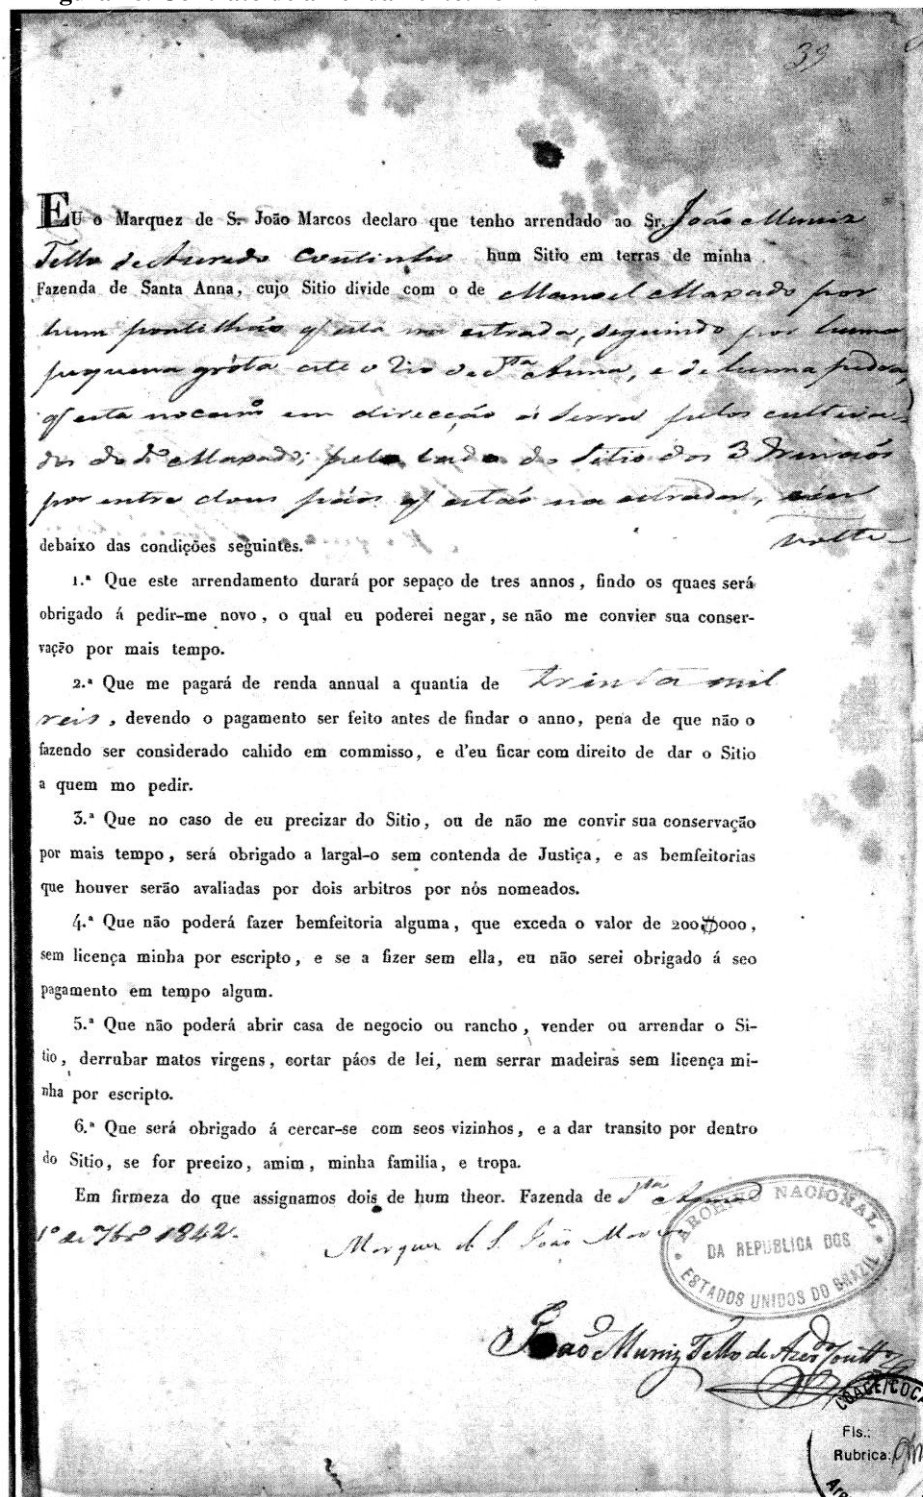 39
EU o Marquez de S. João Marcos declaro que tenho arrendado ao Sr. João Muniz
Tello de Azeredo Coutinho hum Sitio em terras de minha
Fazenda de Santa Anna, cujo Sitio divide com o de Manoel Maxado por
hum pontilhão q' está na estrada, seguindo por huma
pequena gróta até o Rio de Sta Anna, e de huma pedra,
q' está no camo em direcção á Serra pelos
do do Maxado; pelo lado do Sitio dos 3 Irmãos
por entre dous páos q' estão na estrada,
volte
debaixo das condições seguintes.
1.ª Que este arrendamento durará por sepaço de tres annos, findo os quaes será
obrigado á pedir-me novo, o qual eu poderei negar, se não me convier sua conser-
vação por mais tempo.
2.ª Que me pagará de renda annual a quantia de trinta mil
reis, devendo o pagamento ser feito antes de findar o anno, pena de que não o
fazendo ser considerado cahido em commisso, e d'eu ficar com direito de dar o Sitio
a quem mo pedir.
3.ª Que no caso de eu precizar do Sitio, ou de não me convir sua conservação
por mais tempo, será obrigado a largal-o sem contenda de Justiça, e as bemfeitorias
que houver serão avaliadas por dois arbitros por nós nomeados.
4.ª Que não poderá fazer bemfeitoria alguma, que exceda o valor de 200$000,
sem licença minha por escripto, e se a fizer sem ella, eu não serei obrigado á seo
pagamento em tempo algum.
5.ª Que não poderá abrir casa de negocio ou rancho, vender ou arrendar o Si-
tio, derrubar matos virgens, cortar páos de lei, nem serrar madeiras sem licença mi-
nha por escripto.
6.ª Que será obrigado á cercar-se com seos vizinhos, e a dar transito por dentro
do Sitio, se for precizo, amim, minha familia, e tropa.
Em firmeza do que assignamos dois de hum theor. Fazenda de Sta Anna
1º de 7bro 1842.
Marquez de S. João Marcos
ARCHIVO NACIONAL
DA REPUBLICA DOS
ESTADOS UNIDOS DO BRAZIL
João Muniz Tello de Azerdo Coutto
COAGE/COCA
Fls.:
Rubrica: